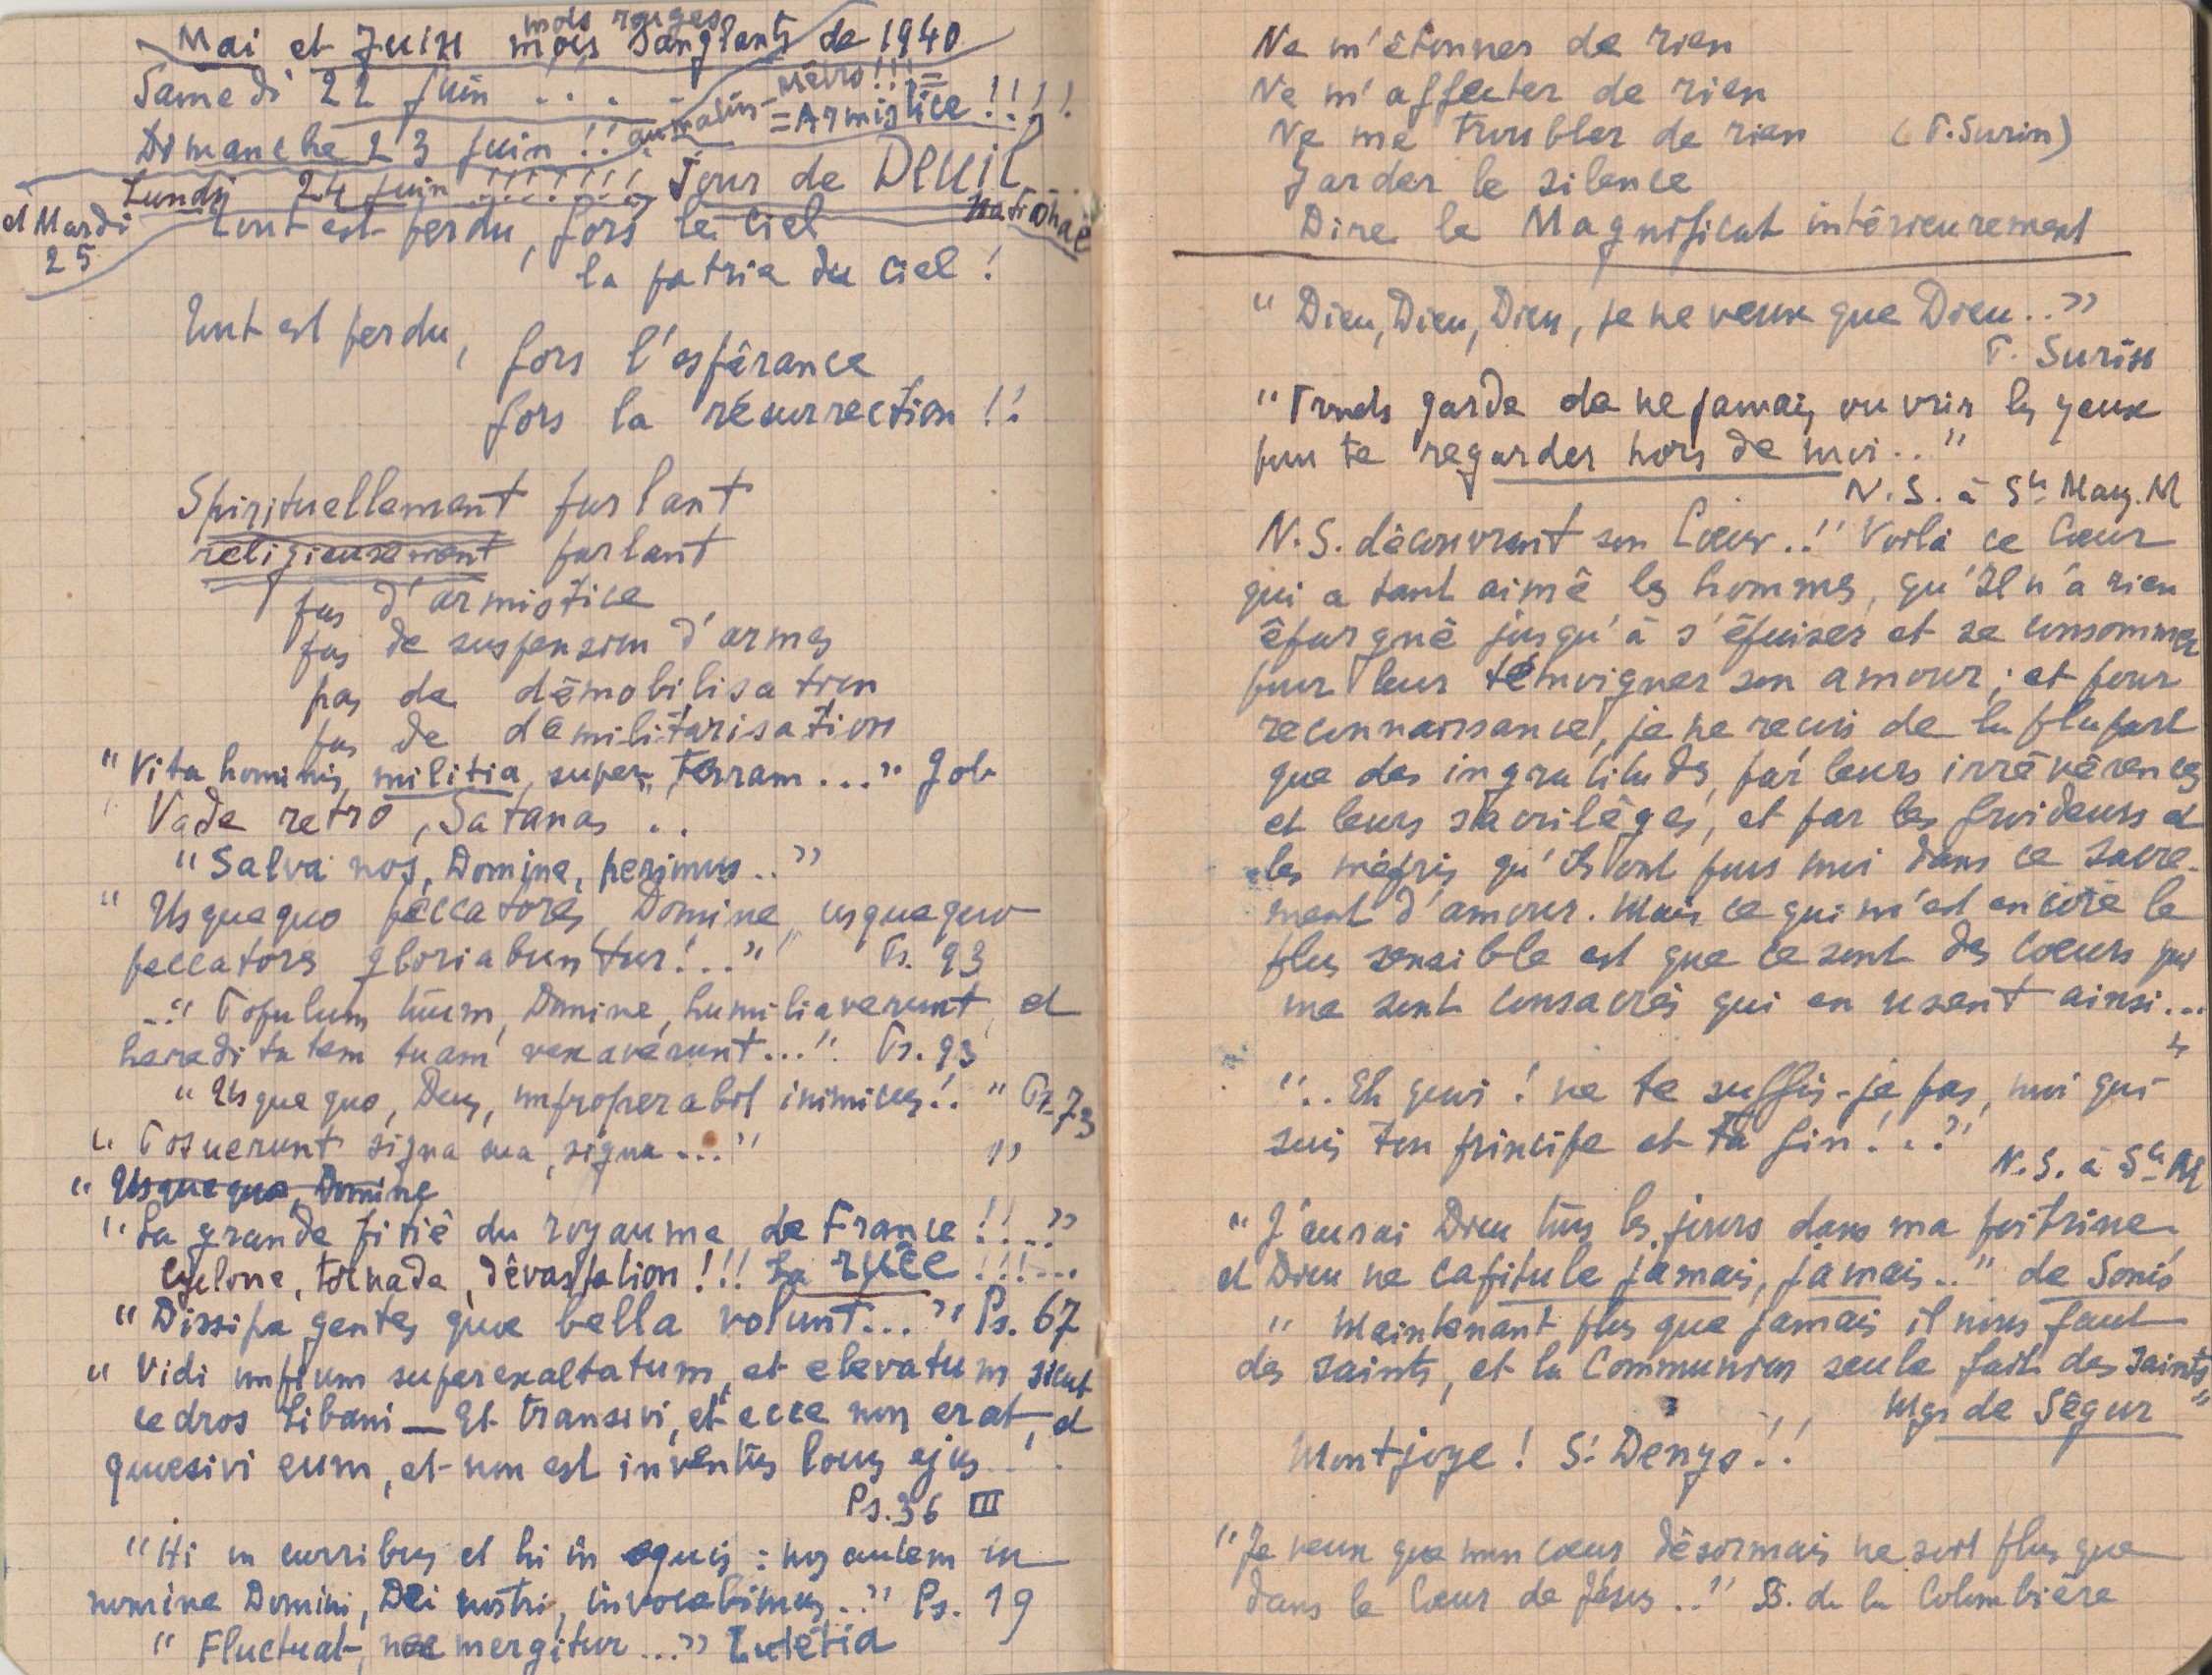 mois rouges
Mai et Juin mois sanglants de 1940
Samedi 22 juin . . . .
métro !!! =
Dimanche 23 juin !! au matin = Armistice !!!!
Lundi 24 juin !!!!!!! Jour de DEUIL
national
et Mardi
25
Tout est perdu, fors le ciel
la patrie du ciel !
Tout est perdu,
fors l'espérance
fors la résurrection !!
Spirituellement parlant
religieusement parlant
pas d'armistice
pas de suspension d'armes
pas de démobilisation
pas de démilitarisation
"Vita hominis, militia, super terram..." Job
Vade retro, Satanas ..
"Salva nos, Domine, perimus.."
"Usquequo peccatores, Domine, usquequo
peccatores gloriabuntur !.." Ps. 93
.." Populum tuum, Domine, humiliaverunt, et
hereditatem tuam vexaverunt..." Ps. 93
"Usquequo, Deus, improperabit inimicus !.." Ps. 73
"Posuerunt signa sua, signa..." "
"Usquequo, Domine
"La grande pitié du royaume de France !!..."
Cyclone, tornade, dévastation !!! La ruée !!!...
"Dissipa gentes quae bella volunt..." Ps. 67
"Vidi impium superexaltatum, et elevatum sicut
cedros Libani — Et transivi, et ecce non erat, et
quaesivi eum, et non est inventus locus ejus...!
Ps. 36 III
"Hi in curribus et hi in equis : nos autem in
nomine Domini, Dei nostri, invocabimus..." Ps. 19
"Fluctuat, nec mergitur..." Lutétia
Ne m'étonner de rien
Ne m'affecter de rien
Ne me troubler de rien (P. Surin)
Garder le silence
Dire le Magnificat intérieurement
"Dieu, Dieu, Dieu, je ne veux que Dieu..."
P. Surin
"Prends garde de ne jamais ouvrir les yeux
pour te regarder hors de moi.."
N.S. à Ste Marg. M
N.S. découvrant son Coeur.." Voilà ce Coeur
qui a tant aimé les hommes, qu'Il n'a rien
épargné jusqu'à s'épuiser et se consommer
pour leur témoigner son amour ; et pour
reconnaissance, je ne reçois de la plupart
que des ingratitudes, par leurs irrévérences
et leurs sacrilèges, et par les froideurs et
les mépris qu'ils ont pour moi dans ce sacre-
ment d'amour. Mais ce qui m'est encore le
plus sensible est que ce sont des coeurs qui
me sont consacrés qui en usent ainsi...
"
".. Eh quoi ! ne te suffis-je pas, moi qui
suis ton principe et ta fin !.."
N.S. à Ste M
"J'aurai Dieu tous les jours dans ma poitrine
et Dieu ne capitule jamais, jamais.." de Sonis
" Maintenant plus que jamais il nous faut
des saints, et la Communion seule fait des saints"
Mgr de Ségur
Montjoye ! St Denys !!
"Je veux que mon coeur désormais ne soit plus que
dans le Coeur de Jésus.." B. de la Colombière